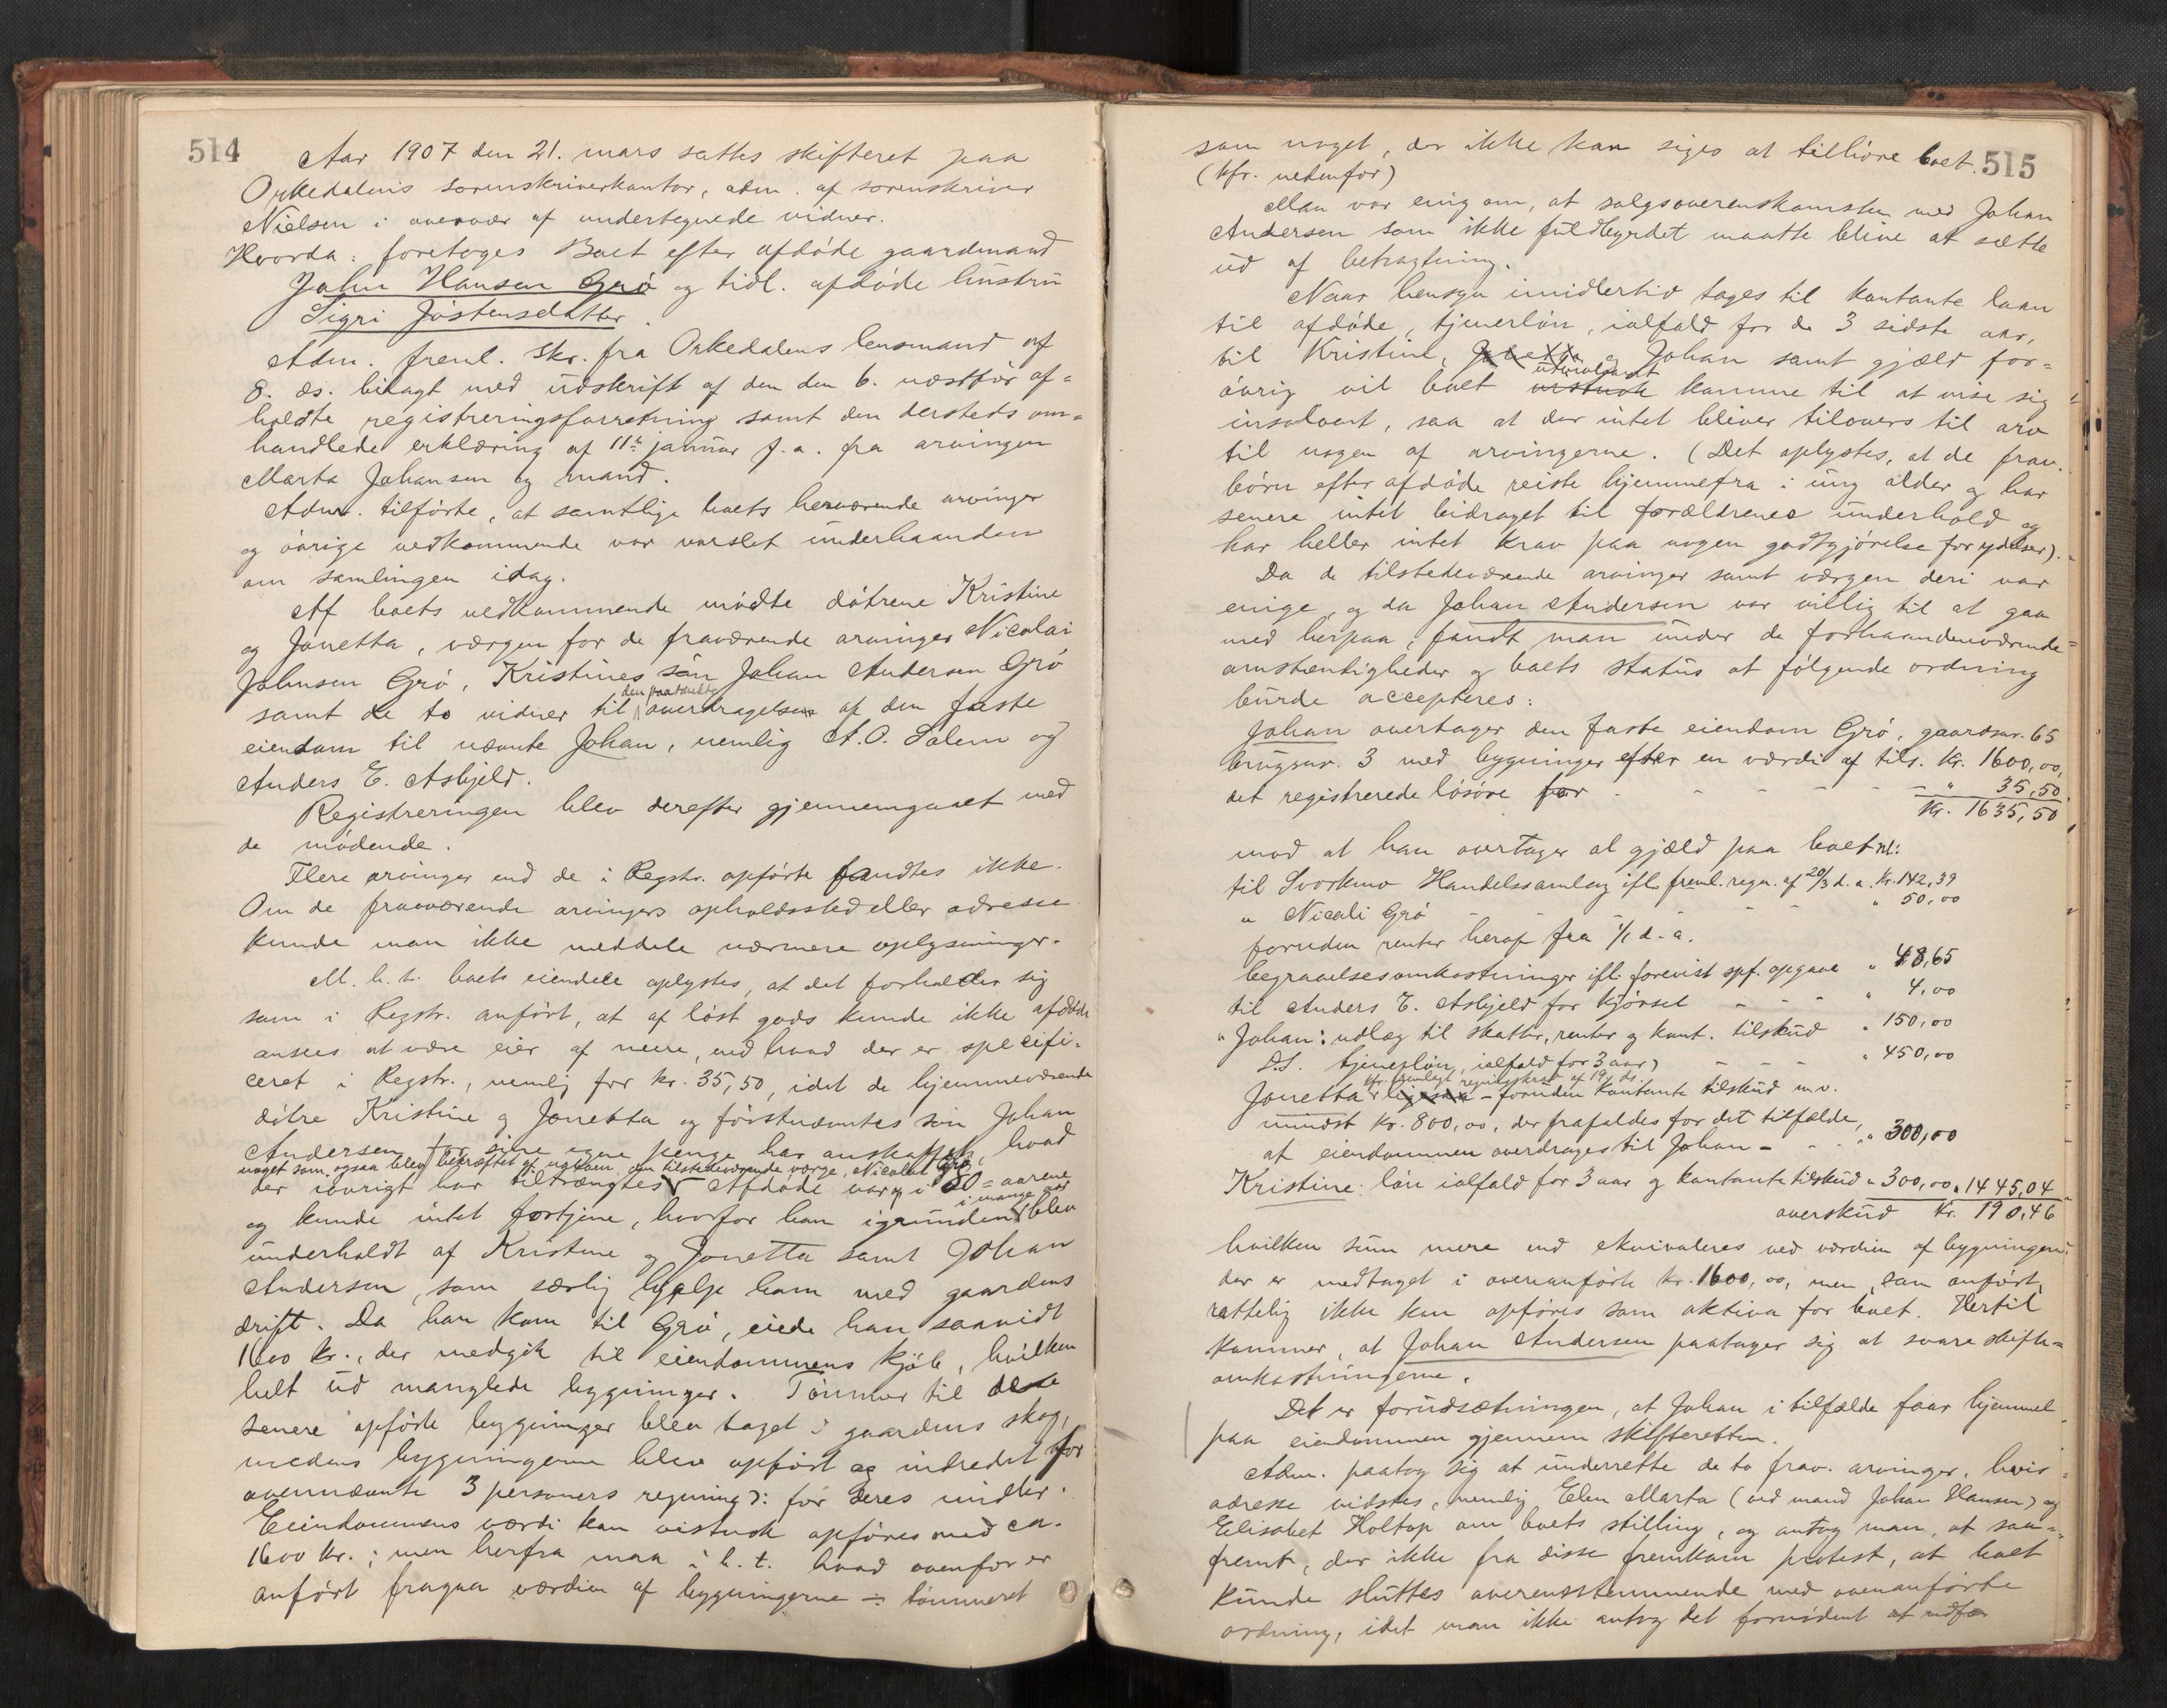 514
Aar 1907 den 21. mars sattes skifteret paa
Orkedalens sorenskriverkontor, adm. af sorenskriver
Nielsen i overvær af undertegnede vidner.
Hvorda: foretoges Boet efter afdøde gaardmand
John Hansen Grø og tidl. afdøde hustru
Sigri Jostensdatter.
Adm. freml. skr. fra Orkedalens lensmand af
8. ds. bilagt med udskrift af den den 6. næstfør af=
holdte registreringsforretning samt den dersteds om=
handlede erklæring af 11te januar f. a. fra arvingen
Marta Johansen og mand.
Adm. tilførte, at samtlige boets herværende arvinger
og øvrige vedkommende var varslet underhaanden
om samlingen idag.
Af boets vedkommende mødte døtrene Kristine
og Jonetta, værgen for de fraværende arvinger Nicolai
Johnsen Grø, Kristines søn Johan Andersen Grø
samt de to vidner til den paatænkte overdragelse af den faste
eiendom til nævnte Johan, nemlig A. O. Solem og
Anders E. Asbjeld.
Registreringen blev derefter gjennemgaaet med
de mødende.
Flere arvinger end de i Regstr. opførte fandtes ikke.
Om de fraværende arvingers opholdssted eller adresse
kunde man ikke meddele nærmere oplysninger.
M. h. t. boets eiendele oplystes, at det forholder sig
som i Regstr. anført, at af løst gods kunde ikke afdøde
ansees at være eier af mere, end hvad der er specifi=
ceret i Regstr., nemlig for kr. 35,50, idet de hjemmeværende
døtre Kristine og Jonetta og førstnævntes søn Johan
Andersen for sine egne penge har anskaffet, hvad
noget som ogsaa blev bekræftet af den tilstedeværende værge, Nicolai Grø
der iøvrigt har tiltrængtes. Afdøde var op i 80=aarene
og kunde intet fortjene, hvorfor han igrunden i mange aar blev
underholdt af Kristine og Jonetta samt Johan
Andersen, som særlig hjalp ham med gaardens
drift. Da han kom til Grø, eiede han saavidt
1600 kr., der medgik til eiendommens kjøb, hvilken
helt ud manglede bygninger. Tømmer til de
senere opførte bygninger blev taget i gaardens skog,
medens bygningerne blev opført og indredet for
ovennævnte 3 personers regning ɔ: for deres midler.
Eiendommens værdi kan vistnok opføres med ca.
1600 kr.; men herfra maa i h. t. hvad ovenfor er
anført fragaa værdien af bygningerne ÷ tømmeret
515
som noget, der ikke kan siges at tilhøre boet.
(kfr. nedenfor)
Man var enig om, at salgsoverenskomsten med Johan
Andersen som ikke fuldbyrdet maatte blive at sætte
ud af betragtning.
Naar hensyn imidlertid tages til kontante laan
til afdøde, tjenerløn, ialfald for de 3 sidste aar,
til Kristine, Jonetta og Johan samt gjæld for=
øvrig vil boet utvivlsomt vistnok komme til at vise sig
insolvent, saa at der intet bliver tilovers til arv
til nogen af arvingerne. (Det oplystes, at de frav.
børn efter afdøde reiste hjemmefra i ung alder og har
senere intet bidraget til forældrenes underhold og
har heller intet krav paa nogen godtgjørelse for ydelser).
Da de tilstedeværende arvinger samt værgen deri var
enige, og da Johan Andersen var villig til at gaa
med herpaa, fandt man under de forhaandenværende
omstændigheder og boets status at følgende ordning
burde accepteres:
Johan overtager den faste eiendom Grø, gaardsnr. 65
brugsnr. 3 med bygninger efter en værdi af tils. kr. 1600,00,
det registrerede løsøre for - - - - - " 35,50
Kr. 1635,50
mod at han overtager al gjæld paa boet nl:
til Svorkmo Handelssamlag ifl. freml. regn. af 20/3 d. a. kr. 142,39
" Nicolai Grø - - - - - " 50,00
foruden renter heraf fra 1/1 d. a.
begravelsesomkostninger ifl. forevist spf. opgave " 48,65
til Anders E. Asbjeld for kjørsel - - - " 4,00
" Johan: udlæg til skatter, renter og kont. tilskud " 150,00
D.S. tjenerløn, ialfald for 3 aar) - - - " 450,00
kfr. fremlagt regningskrav af 19. ds.
Jonetta ligesaa - foruden kontante tilskud m. v.
mindst kr. 800,00, der frafaldes for det tilfælde,
at eiendommen overdrages til Johan - - - " 300,00
Kristine: løn ialfald for 3 aar og kontante tilskud " 300,00 " 1445,04
overskud Kr. 190,46
hvilken sum mere end ekvivaleres ved værdien af bygningerne
der er medtaget i ovenanførte kr. 1600,00, men, som anført,
rettelig ikke kan opføres som aktiva for boet. Hertil
kommer, at Johan Andersen paatager sig at svare skifte=
omkostningerne.
Det er forudsætningen, at Johan i tilfælde faar hjemmel
paa eiendommen gjennem skifteretten.
Adm. paatog sig at underrette de to frav. arvinger, hvis
adresse vidstes, nemlig Elen Marta (ved mand Johan Hansen) og
Elisabet Holtop om boets stilling, og antog man, at saa=
fremt, der ikke fra disse fremkom protest, at boet
kunde sluttes overensstemmende med ovenanførte
ordning, idet man ikke antog det fornødent at udfær